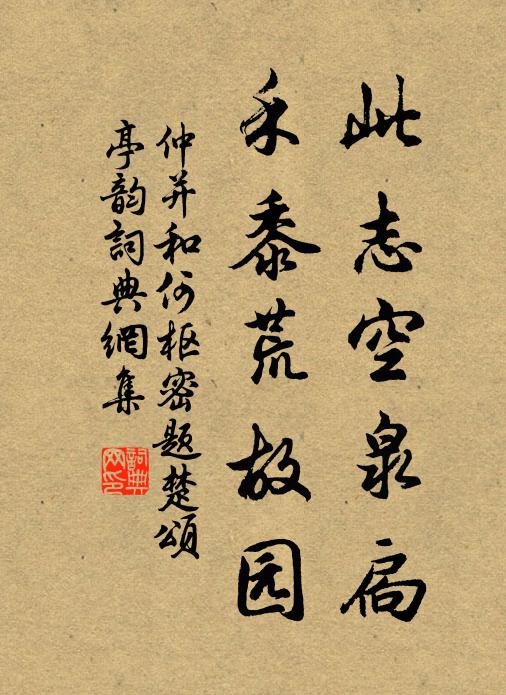 此志空泉扃
禾黍荒故园
仲并和何枢密题楚颂
亭韵詞典網集
詞典网印